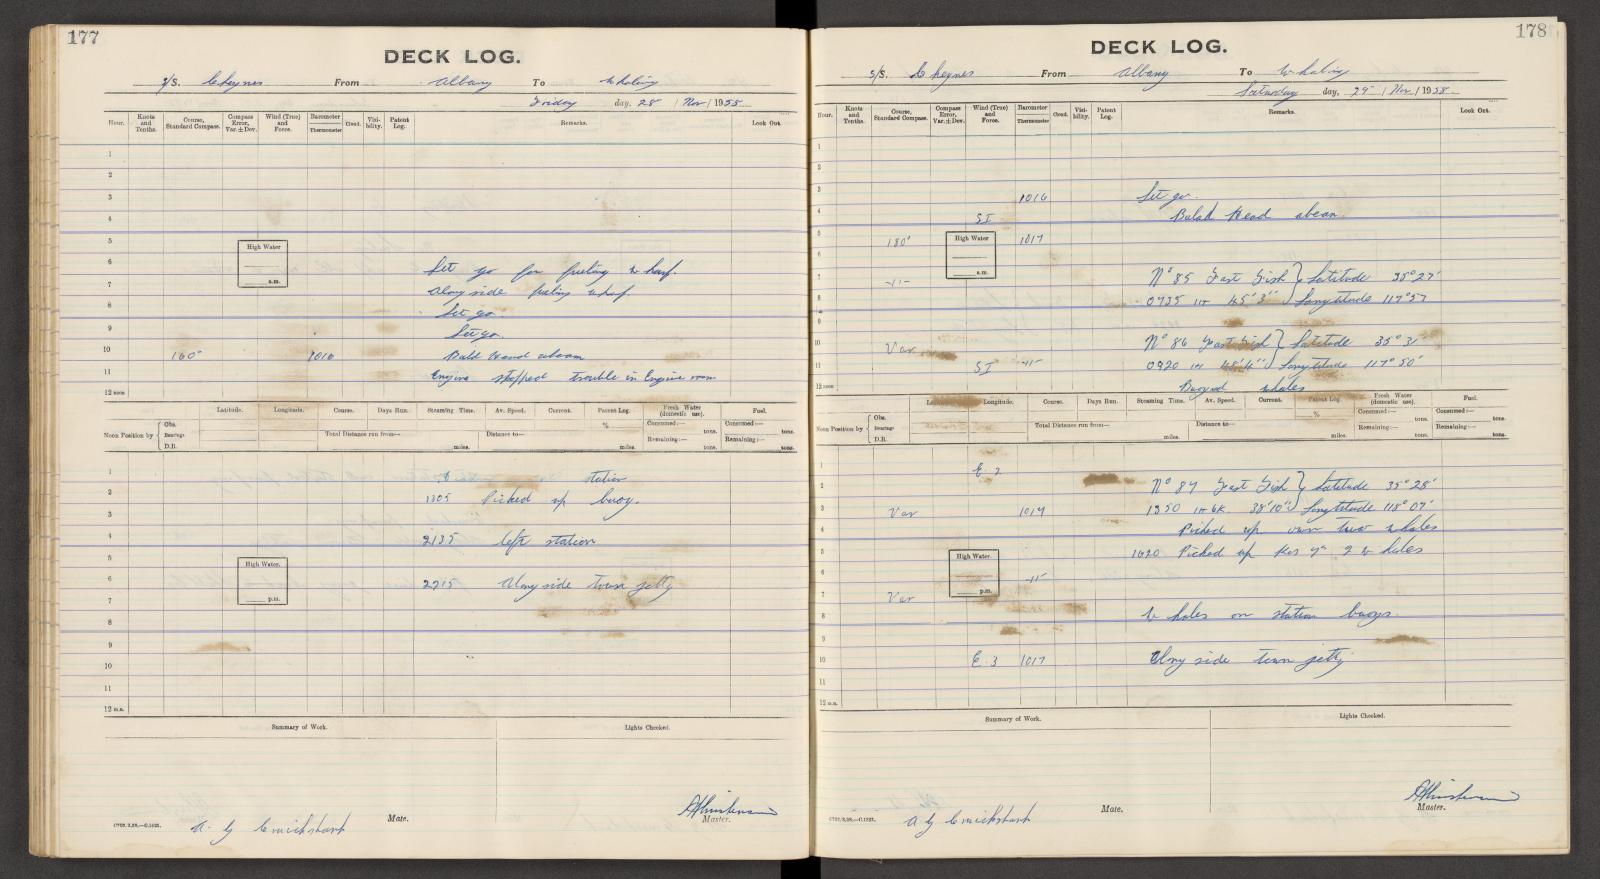 177
DECK LOG.
S/S. Cheynes From Albany To Whaling
Friday day, 28 / Nov / 1958
Hour. Knots and Tenths. Course, Standard Compass. Compass Error, Var. ± Dev. Wind (True) and Force. Barometer Thermometer Cloud. Visibility. Patent Log. Remarks. Look Out.
1
2
3
4
5
High Water
a.m.
6 Let go for fueling wharf.
7 Along side fueling wharf.
8 Let go.
9 Let go.
10 160° 1016 Bald Head abeam
11 Engine stopped trouble in Engine room
12 noon
Latitude. Longitude. Course. Days Run. Steaming Time. Av. Speed. Current. Patent Log. Fresh Water (domestic use). Fuel.
Noon Position by Obs. Bearings D.R.
Total Distance run from— miles. Distance to— miles. %
Consumed:— tons. Remaining:— tons. Consumed:— tons. Remaining:— tons.
1 station
2 1305 Picked up buoy.
3
4 2135 left station
5
High Water.
p.m.
6 2215 Along side town jetty
7
8
9
10
11
12 m.n.
Summary of Work. Lights Checked.
Mate. Master.
178
DECK LOG.
S/S. Cheynes From Albany To Whaling
Saturday day, 29 / Nov / 1958
Hour. Knots and Tenths. Course, Standard Compass. Compass Error, Var. ± Dev. Wind (True) and Force. Barometer Thermometer Cloud. Visibility. Patent Log. Remarks. Look Out.
1
2
3 1016 Let go.
4 Bald Head abeam.
5 180° 1017
High Water
a.m.
6
7 -11- No 85 Fast Fish } Latitude 35°27'
8 0735 45'3" } Longtitude 117°57'
9
10 Var No 86 Fast Fish } Latitude 35°31'
11 -11- 0920 48'4" } Longtitude 117°50'
12 noon Buoyed whales
Latitude. Longitude. Course. Days Run. Steaming Time. Av. Speed. Current. Patent Log. Fresh Water (domestic use). Fuel.
Noon Position by Obs. Bearings D.R.
Total Distance run from— miles. Distance to— miles. %
Consumed:— tons. Remaining:— tons. Consumed:— tons. Remaining:— tons.
1 E. 2
2 No 87 Fast Fish } Latitude 35°28'
3 Var 1350 38'10" } Longtitude 118°07'
4 Picked up own two whales
5 1620 Picked up 2 whales
High Water.
p.m.
6 -11-
7 Var
8 Whales on station buoys.
9
10 E. 3 1017 Along side town jetty
11
12 m.n.
Summary of Work. Lights Checked.
Mate. Master.